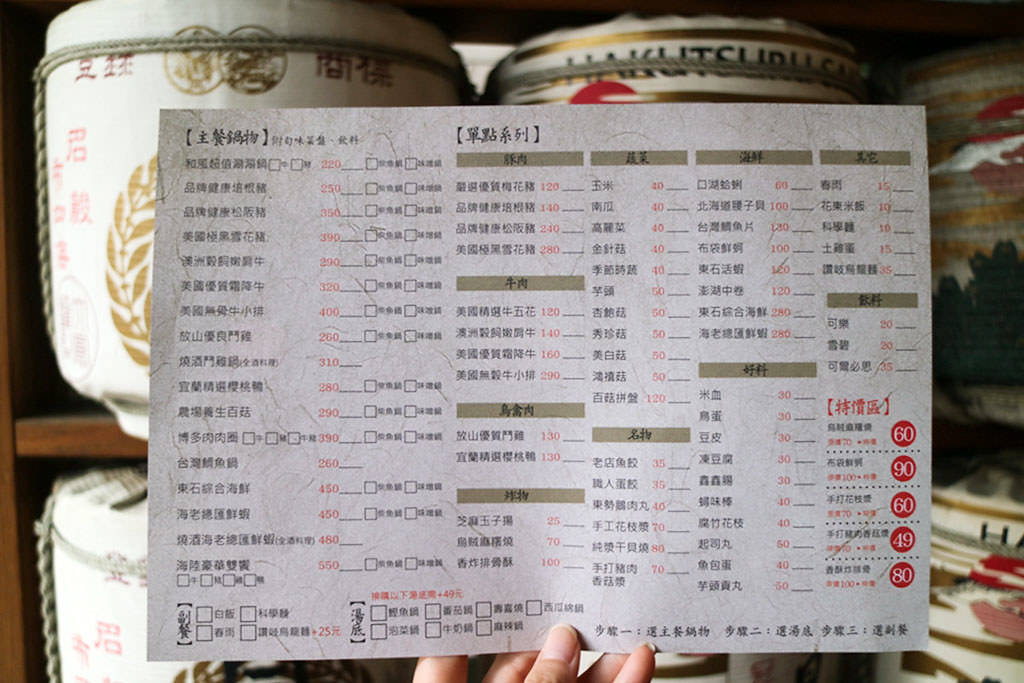 登錄
商標
HAKUTSURU SA
【主餐鍋物】附旬味菜盤、飲料
和風超值涮涮鍋 □牛□豬 220 □柴魚鍋 □味噌鍋
品牌健康培根豬 250 □柴魚鍋 □味噌鍋
品牌健康松阪豬 350 □柴魚鍋 □味噌鍋
美國極黑雪花豬 390 □柴魚鍋 □味噌鍋
澳洲穀飼嫩肩牛 290 □柴魚鍋 □味噌鍋
美國優質霜降牛 320 □柴魚鍋 □味噌鍋
美國無骨牛小排 400 □柴魚鍋 □味噌鍋
放山優良鬥雞 260 □柴魚鍋 □味噌鍋
燒酒鬥雞鍋(全酒料理) 310
宜蘭精選櫻桃鴨 280 □柴魚鍋 □味噌鍋
農場養生百菇 290 □柴魚鍋 □味噌鍋
博多肉肉圈 □牛□豬□牛豬 390 □柴魚鍋 □味噌鍋
台灣鯛魚鍋 260
東石綜合海鮮 450 □柴魚鍋 □味噌鍋
海老總匯鮮蝦 450 □柴魚鍋 □味噌鍋
燒酒海老總匯鮮蝦(全酒料理) 480
海陸豪華雙饗 550 □柴魚鍋 □味噌鍋
□牛□豬□雞□鴨
【副餐】
□白飯 □科學麵
□春雨 □讚岐烏龍麵+25元
【湯底】
換購以下湯底需+49元
□鰹魚鍋 □番茄鍋 □壽喜燒 □西瓜綿鍋
□泡菜鍋 □牛奶鍋 □麻辣鍋
【單點系列】
豚肉
嚴選優質梅花豬 120
品牌健康培根豬 140
品牌健康松阪豬 240
美國極黑雪花豬 280
牛肉
美國精選牛五花 120
澳洲穀飼嫩肩牛 140
美國優質霜降牛 160
美國無穀牛小排 290
鳥禽肉
放山優質鬥雞 130
宜蘭精選櫻桃鴨 130
炸物
芝麻玉子揚 25
烏賊麻糬燒 70
香炸排骨酥 100
蔬菜
玉米 40
南瓜 40
高麗菜 40
金針菇 40
季節時蔬 40
芋頭 50
杏鮑菇 50
秀珍菇 50
美白菇 50
鴻禧菇 50
百菇拼盤 120
名物
老店魚餃 35
職人蛋餃 35
東勢鵝肉丸 40
手工花枝漿 70
純漿干貝燒 80
手打豬肉 70
香菇漿
海鮮
口湖蛤蜊 60
北海道腰子貝 100
台灣鯛魚片 130
布袋鮮蚵 100
東石活蝦 120
澎湖中卷 120
東石綜合海鮮 280
海老總匯鮮蝦 280
好料
米血 30
鳥蛋 30
豆皮 30
凍豆腐 30
鑫鑫腸 30
蟳味棒 40
腐竹花枝 40
起司丸 50
魚包蛋 40
芋頭貢丸 50
其它
春雨 15
花東米飯 10
科學麵 10
土雞蛋 15
讚岐烏龍麵 35
飲料
可樂 20
雪碧 20
可爾必思 35
【特價區】
烏賊麻糬燒
原價70 ▸特價 60
布袋鮮蚵
原價100 ▸特價 90
手打花枝漿
原價70 ▸特價 60
手打豬肉香菇漿
原價70 ▸特價 49
香酥炸排骨
原價100 ▸特價 80
步驟一：選主餐鍋物 步驟二：選湯底 步驟三：選副餐